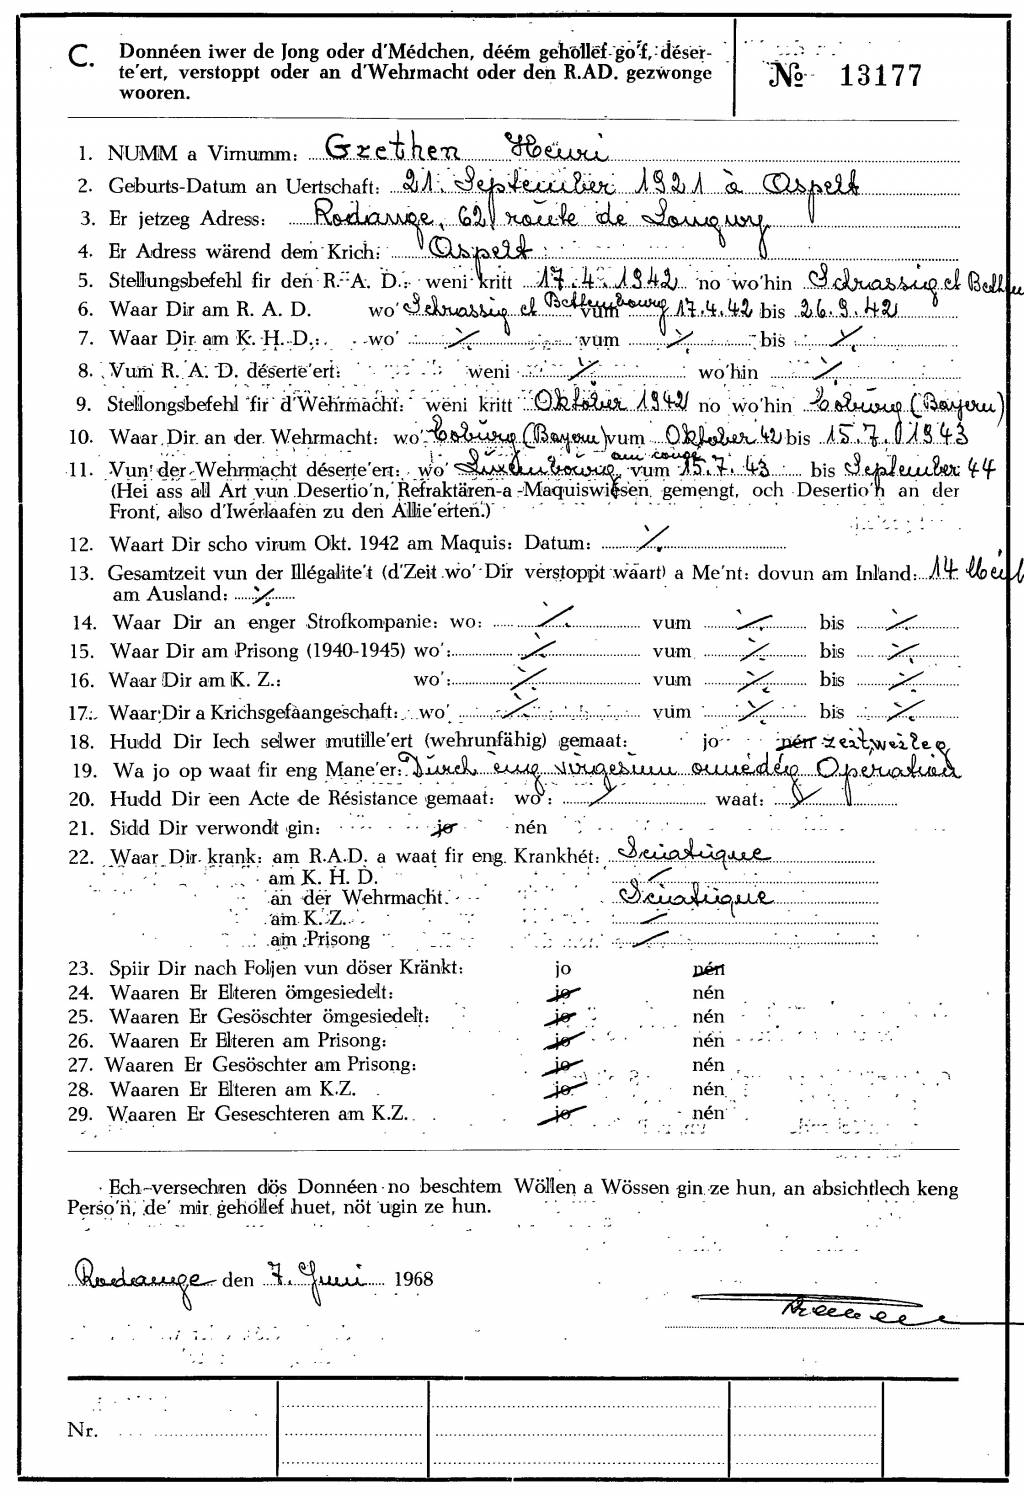 C. Donnéen iwer de Jong oder d'Médchen, déém gehöllef go'f, déser-
te'ert, verstoppt oder an d'Wehrmacht oder den R.AD. gezwonge
wooren.
№ 13177
1. NUMM a Virnumm: Grethen Henri
2. Geburts-Datum an Uertschaft: 21. September 1921 à Aspelt
3. Er jetzeg Adress: Rodange, 62, route de Longwy
4. Er Adress wärend dem Krich: Aspelt
5. Stellungsbefehl fir den R. A. D.: weni kritt 17.4.1942 no wo'hin Schrassig et
6. Waar Dir am R. A. D. wo' Schrassig et Bettembourg vum 17.4.42 bis 26.9.42
7. Waar Dir am K. H. D.: wo' ·/. vum ·/. bis ·/.
8. Vum R. A. D. déserte'ert: weni ·/. wo'hin ·/.
9. Stellongsbefehl fir d'Wehrmacht: weni kritt Oktober 1942 no wo'hin Coburg (Bayern)
10. Waar Dir an der Wehrmacht: wo' Coburg (Bayern) vum Oktober 42 bis 15.7.1943
am congé
11. Vun der Wehrmacht déserte'ert: wo' Luxembourg vum 15.7.43 bis September 44
(Hei ass all Art vun Desertio'n, Refraktären-a -Maquiswiesen gemengt, och Desertio'n an der
Front, also d'Iwerlaafen zu den Allie'erten.)
12. Waart Dir scho virum Okt. 1942 am Maquis: Datum: ·/.
13. Gesamtzeit vun der Illégalite't (d'Zeit wo' Dir verstoppt waart) a Me'nt: dovun am Inland: 14
am Ausland: ·/.
14. Waar Dir an enger Strofkompanie: wo: ·/. vum ·/. bis ·/.
15. Waar Dir am Prisong (1940-1945) wo': ·/. vum ·/. bis ·/.
16. Waar Dir am K. Z.: wo': ·/. vum ·/. bis ·/.
17. Waar Dir a Krichsgefaangeschaft: wo' ·/. vum ·/. bis ·/.
18. Hudd Dir Iech selwer mutille'ert (wehrunfähig) gemaat: jo nén zeitweileg
19. Wa jo op waat fir eng Mane'er: Durch eng virgesinn onnédég Operatioun
20. Hudd Dir een Acte de Résistance gemaat: wo': / waat: /
21. Sidd Dir verwondt gin: jo nén
22. Waar Dir krank: am R.A.D. a waat fir eng Krankhét: Sciatique
am K. H. D. /
an der Wehrmacht Sciatique
am K. Z. /
am Prisong /
23. Spiir Dir nach Foljen vun döser Kränkt: jo nén
24. Waaren Er Elteren ömgesiedelt: jo nén
25. Waaren Er Gesöschter ömgesiedelt: jo nén
26. Waaren Er Elteren am Prisong: jo nén
27. Waaren Er Gesöschter am Prisong: jo nén
28. Waaren Er Elteren am K.Z. jo nén
29. Waaren Er Geseschteren am K.Z. jo nén
Ech versechren dös Donnéen no beschtem Wöllen a Wössen gin ze hun, an absichtlech keng
Perso'n, de' mir gehöllef huet, nöt ugin ze hun.
Rodange den 7. Juni 1968
Nr.